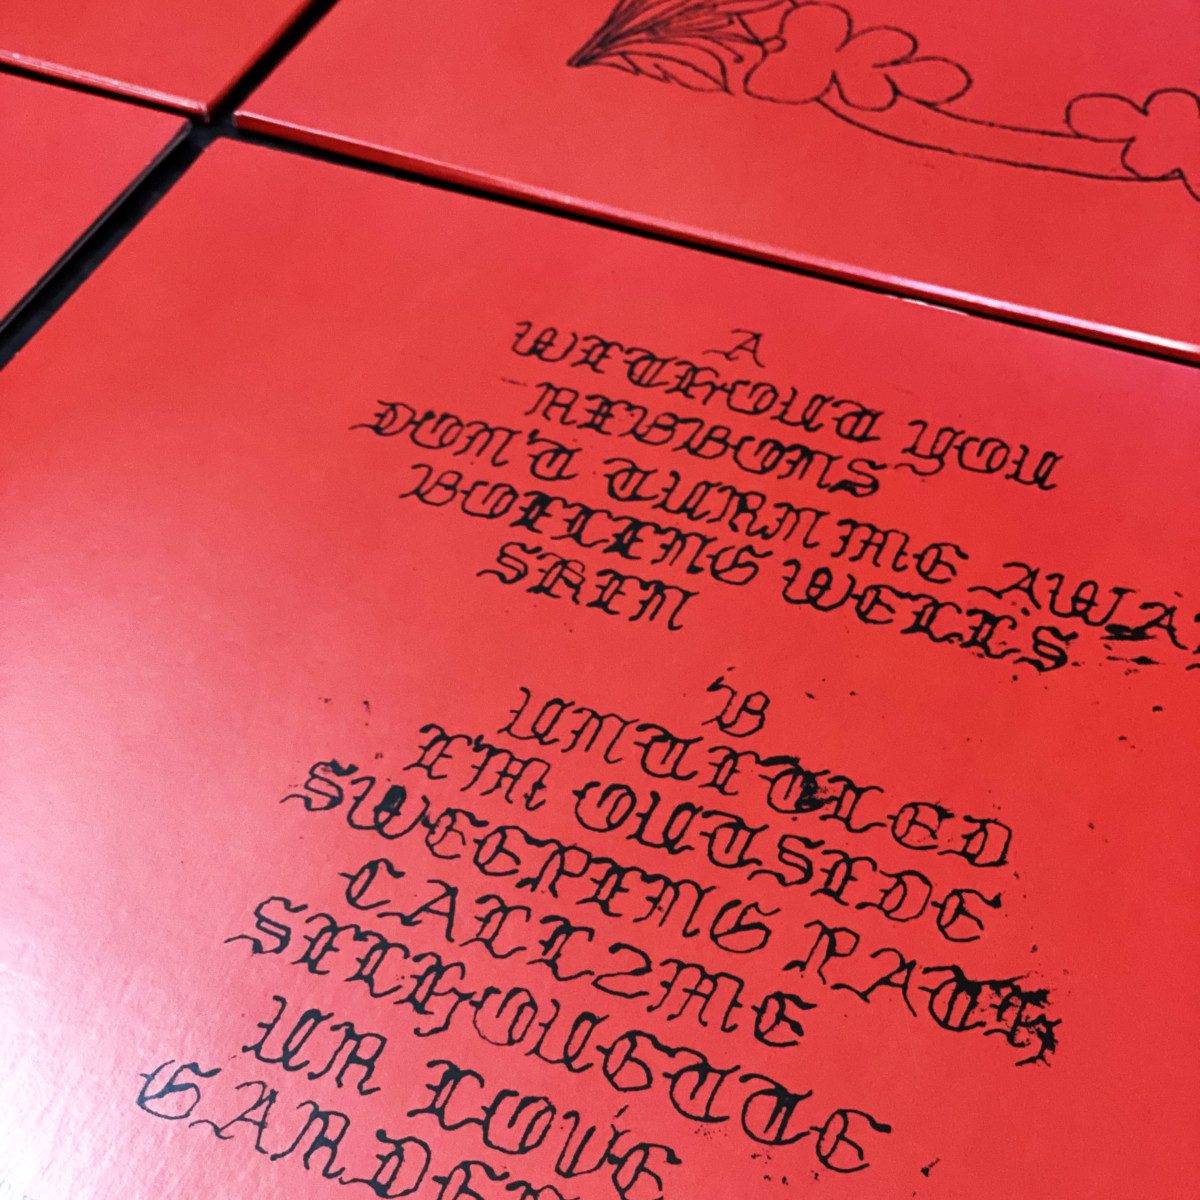 A
WITHOUT YOU
RIBBONS
DON'T TURN ME AWA
BOILING WELLS
SKIN
B
UNTITLED
I'M OUTSIDE
SWEEPING PATH
CALL2ME
SILHOUGTTE
UR LOVE
GARDE